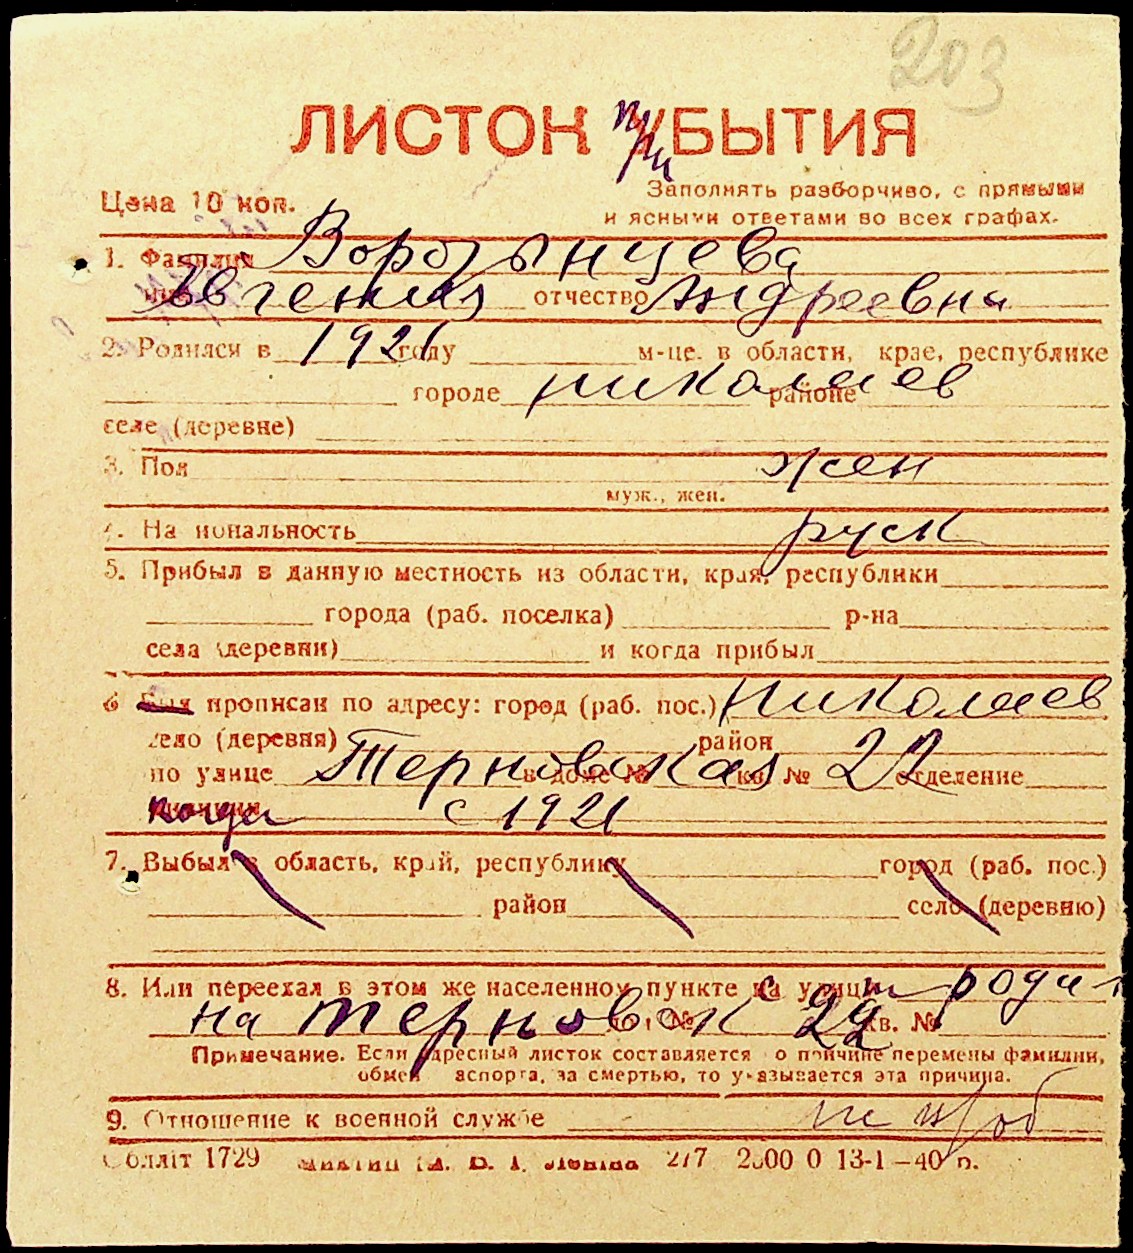 203
ЛИСТОК при УБЫТИЯ
Цена 10 коп.
Заполнять разборчиво, с прямыми
и ясными ответами во всех графах.
1. Фамилия Воротынцева
имя Евгения отчество Андреевна
2. Родился в 1921 году м-це. в области, крае, республике
городе николаев районе
селе (деревне)
3. Пол жен
муж., жен.
4. Национальность руск
5. Прибыл в данную местность из области, края, республики
города (раб. поселка) р-на
села (деревни) и когда прибыл
6 Был прописан по адресу: город (раб. пос.) Николаев
село (деревня) район
по улице Терновская в доме № кв. № 22 отделение
когда с 1921
7. Выбыл в область, край, республику город (раб. пос.)
район село (деревню)
8. Или переехал в этом же населенном пункте на улицу родит
на терновск дом № 22 кв. №
Примечание. Если адресный листок составляется по причине перемены фамилии,
обмен паспорта, за смертью, то указывается эта причина.
9. Отношение к военной службе
Обллiт 1729 2000 0 13-1-40 р.